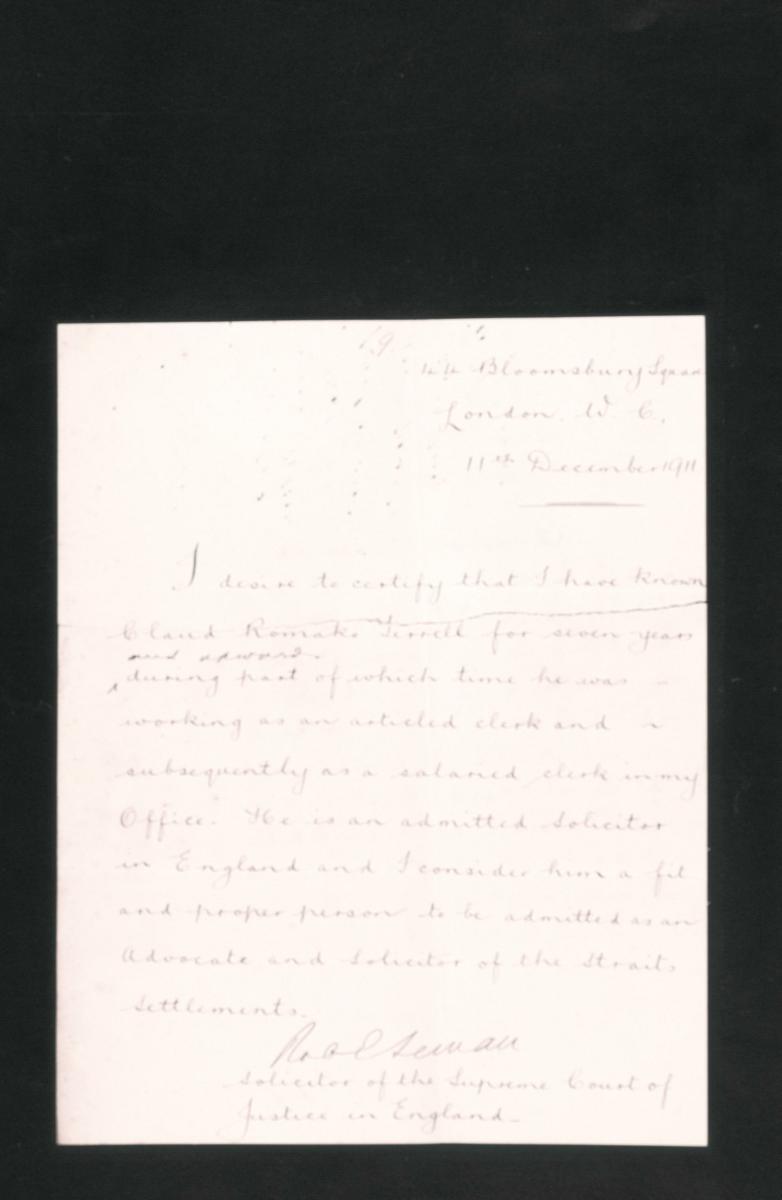 19
44 Bloomsbury Square
London. W. C.
11th December 1911
I desire to certify that I have known
Claud Romako Terrell for seven years
and upwards
during part of which time he was
working as an articled clerk and
subsequently as a salaried clerk in my
Office. He is an admitted Solicitor
in England and I consider him a fit
and proper person to be admitted as an
Advocate and Solicitor of the Straits
Settlements.
Solicitor of the Supreme Court of
Justice in England